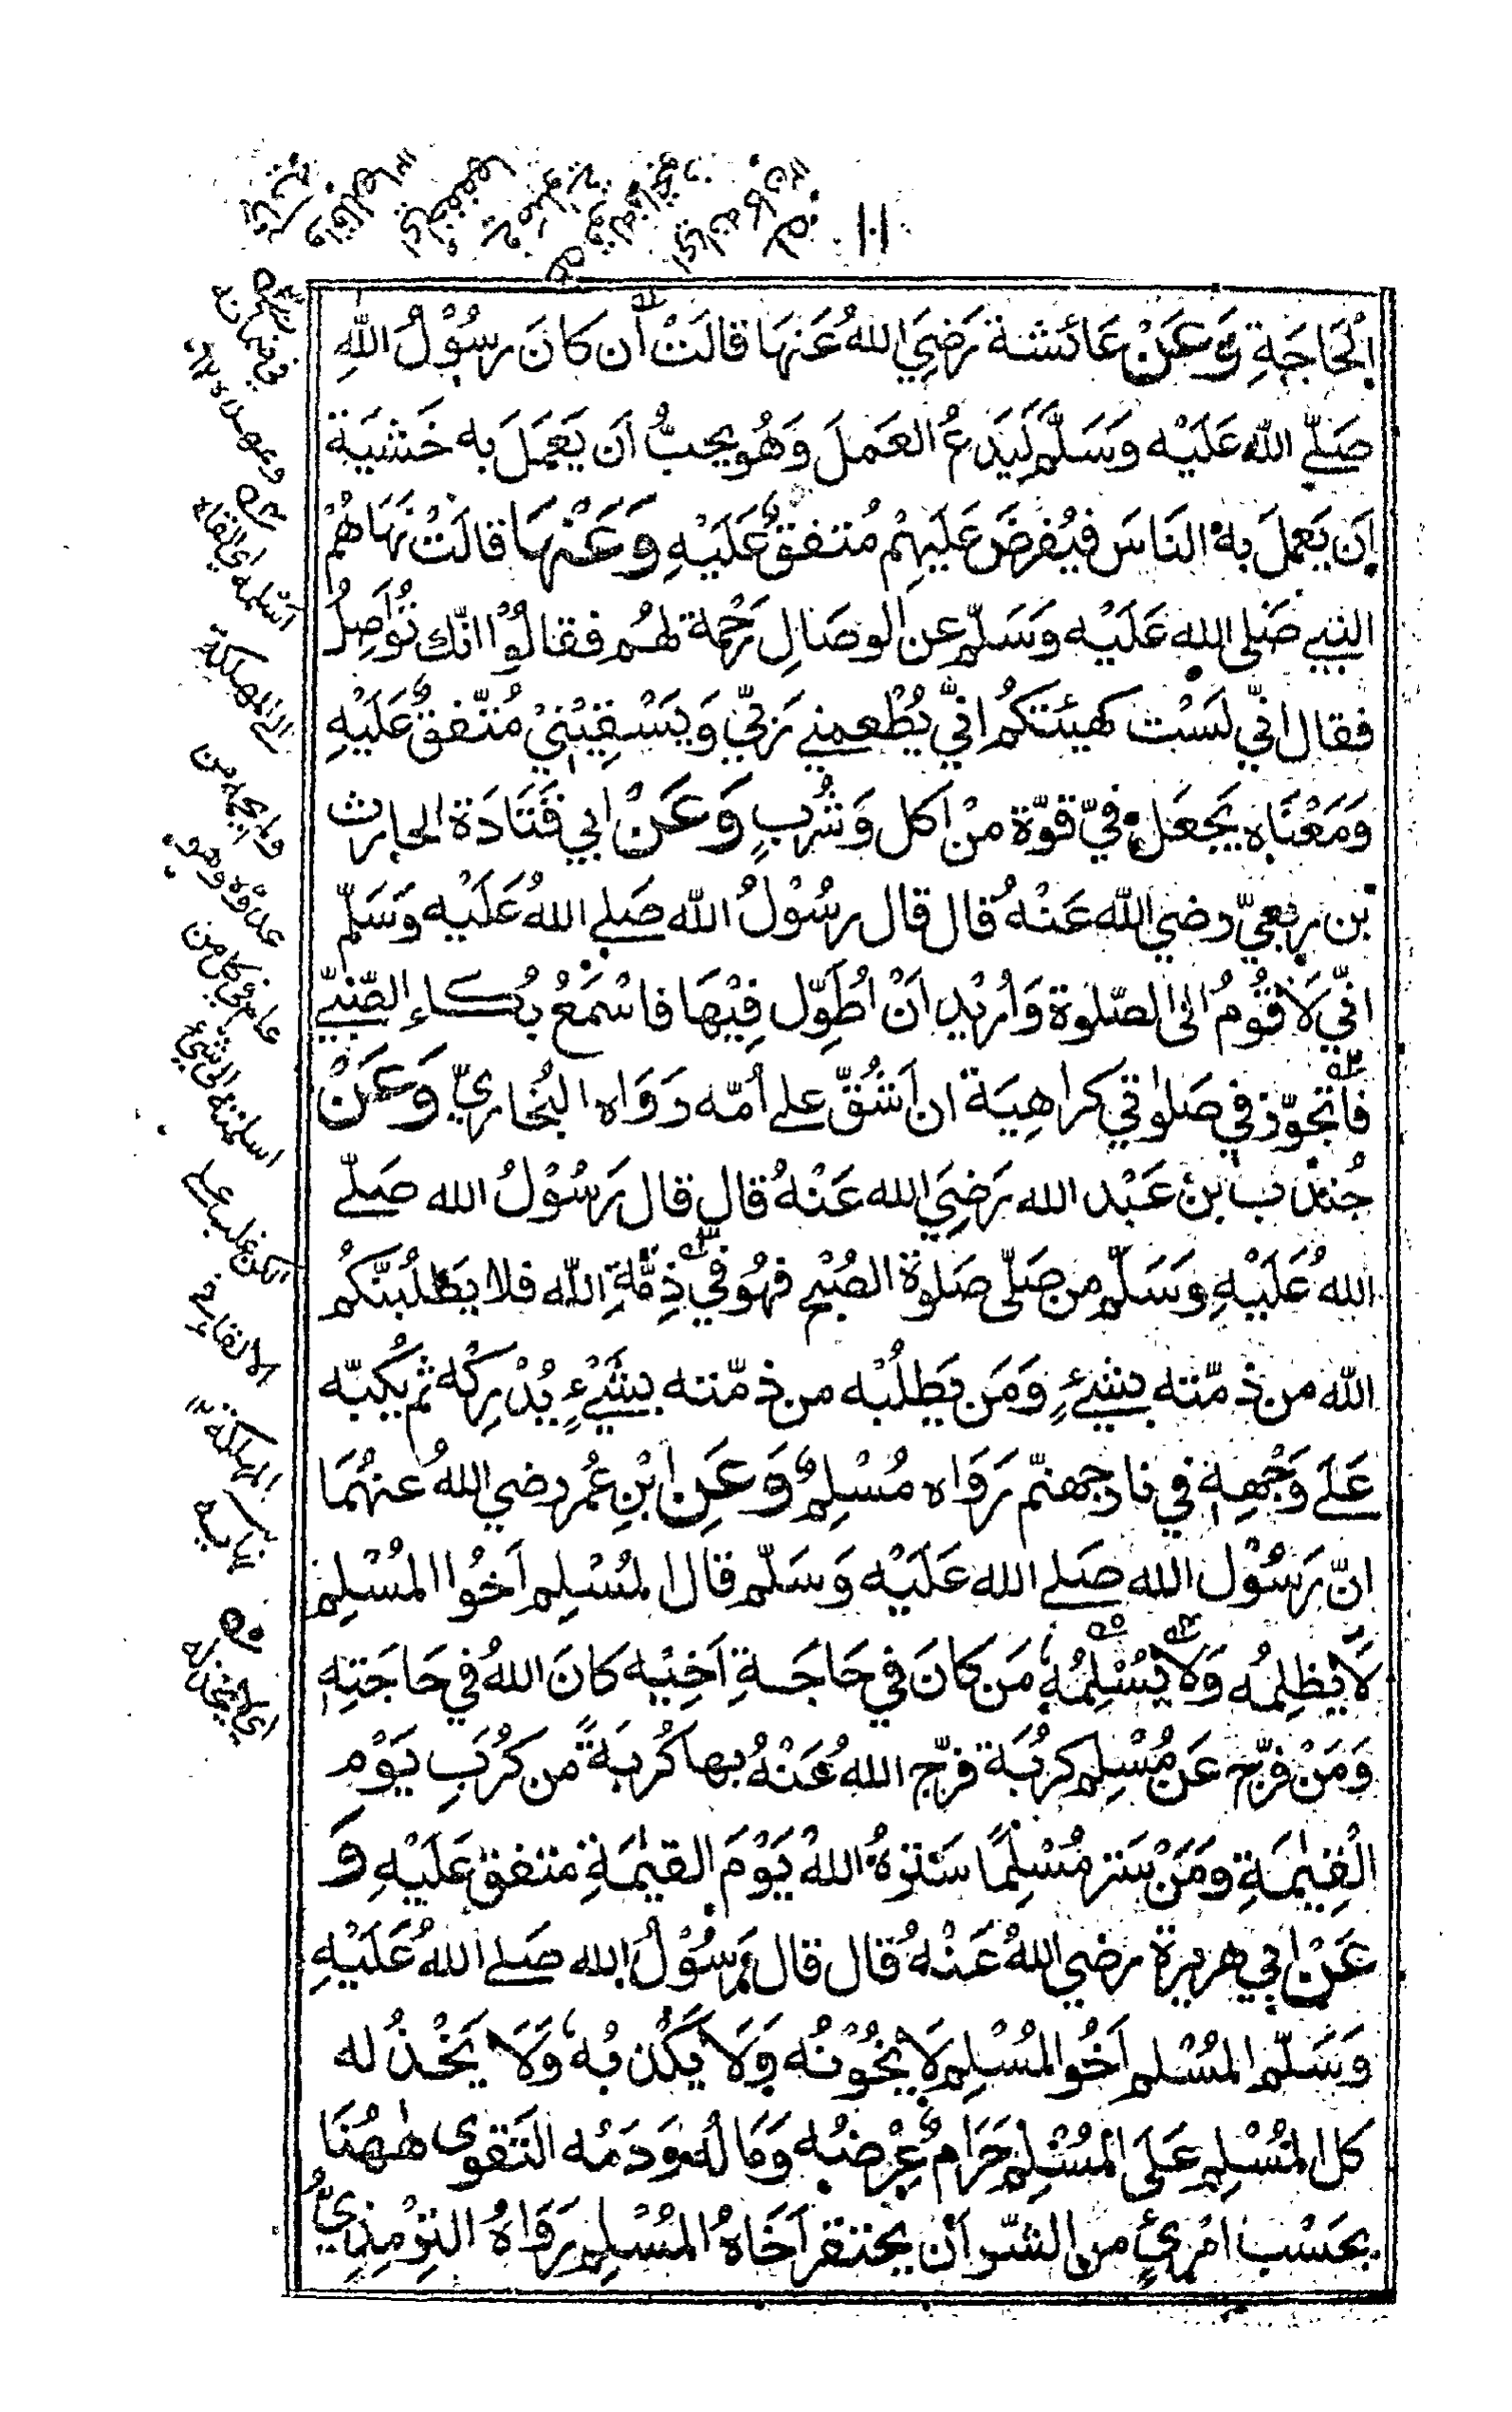 ١١٠
الْحَاجَةِ وَعَنْ عَائشة رَضِيَ اللهُ عَنهَا قالَتْ أن كانَ رسُوْلُ اللهِ
صَلّے اللهُ عَلَيْه وَسَلَّم لَيَدَعُ العَملَ وَهُو يحِبُّ اَن يَعمَلَ به خَشيَة
اَن يَعملَ به النَاسَ فيُفرضَ عَلَيهِمْ مُتفقٌ عَلَيْهِ وَعَنْهَا قالَتْ نَهَاهُمْ
النبي صَلى الله عَلَيْه وَسَلّم عن الوصَالِ رَحْمة لهُم فقالُوْا انّك تُوَاصِلُ
فقال انّي لَسْت كهيئتكُم انّي يُطْعمني رَبّي وَيَسْقِيْنيْ مُتّفقٌ عَلَيْهِ
وَمَعْنَاه يَجعَل فيّ قوّة منْ اَكل وَشُربٍ وَعَنْ ابي قَتَادَة الحارث
بن ربعيّ رضي الله عَنْهُ قال قال رسُوْلُ الله صَلے اللهُ عَلَيْه وَسَلّم
انّي لَاَقُوْمُ الى الصّلوة وَاُريْد اَنْ اُطَوِّل فِيْهَا فاسْمَعُ بُكاء الصّبيّ
فاَتجوّز في صَلوٰتي كراهِيَة ان اَشُقّ علے اُمّه رَوَاه البُخاريّ وَعَنْ
جُندُب بْن عَبْد الله رَضِيَ الله عَنْهُ قال قال رَسُوْلُ الله صَلّے
اللهُ عَلَيْهِ وَسَلّم من صَلّى صَلوٰة الصُبْحِ فهُو في ذِمّةِ الله فلا يَطلُبَنَّكُم
الله من ذمّته بشيءٍ وَمَن يَطلُبْه من ذمّته بشَيْءٍ يُدْرِكْه ثم يَكُبّه
عَلَے وَجْهِهٖ في نار جهنّم رَوَاه مُسْلِمٌ وَعَنِ ابْنِ عُمر رضي اللهُ عنهُمَا
انّ رَسُوْل الله صَلے الله عَلَيْه وَسَلّم قال المُسْلِم اَخُوا المُسْلِم
لَا يَظلِمُه وَلَا يُسْلِمُهٗ مَن كانَ في حَاجَةِ اَخِيْه كانَ اللهُ في حَاجَتِهٖ
وَمَنْ فرّج عَن مُسْلِم كرُبَة فرّج اللهُ عَنْهُ بها كُربَةً من كُرَبِ يَوْمِ
الْقِيٰمَةِ وَمَنْ سَتر مُسْلِمًا سَتَرهُ اللهُ يَوْمَ القيٰمَةِ متفق عَلَيْهِ وَ
عَنْ ابي هريرة رضي اللهُ عَنْهُ قال قال رَسُوْلُ الله صَلے اللهُ عَلَيْهِ
وَسَلّم المُسْلم اَخُو المُسْلِم لَا يَخُوْنُه وَلَا يَكْذبُه وَلَا يَخْذُ له
كل المُسْلِم عَلَى المُسْلِم حَرَامٌ عِرْضُه وَمَالُه وَدَمُه التَقوى هٰهُنَا
بحَسْب امْرئٍ من الشّر اَنْ يحتقر اَخَاهُ المُسْلِم رَوَاهُ التِرْمِذِيُّ
اَسْلمه اي القاه
الى الهلكة
ولم يحمه من
عدوّه وهو
عام في كل من
اسلمته الى شيء
لكن غلب على
الالقاء في
الهلكة
نهايه
اي لا يخذله